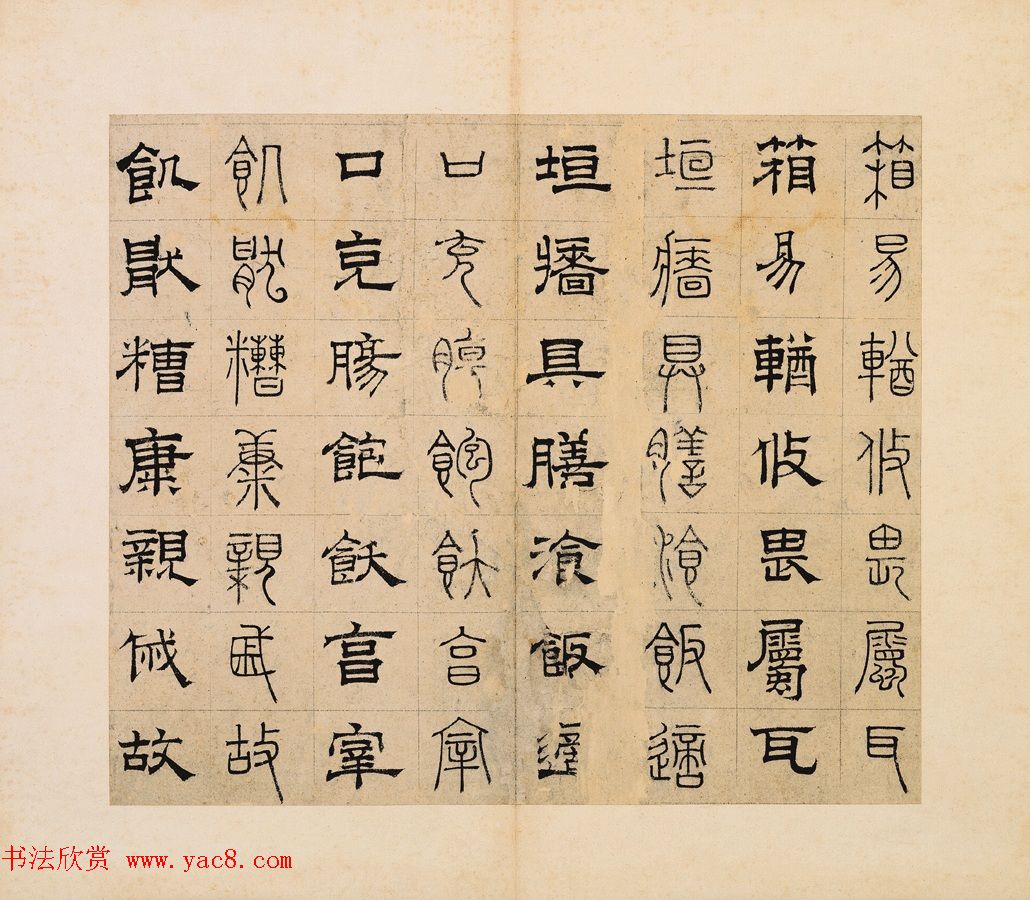 箱易輶攸畏屬耳
箱易輶攸畏屬耳
垣牆具膳湌飯適
垣牆具膳湌飯適
口充腸飽飫亯宰
口充腸飽飫亯宰
飢猒糟康親戚故
飢猒糟康親戚故
书法欣赏 www.yac8.com